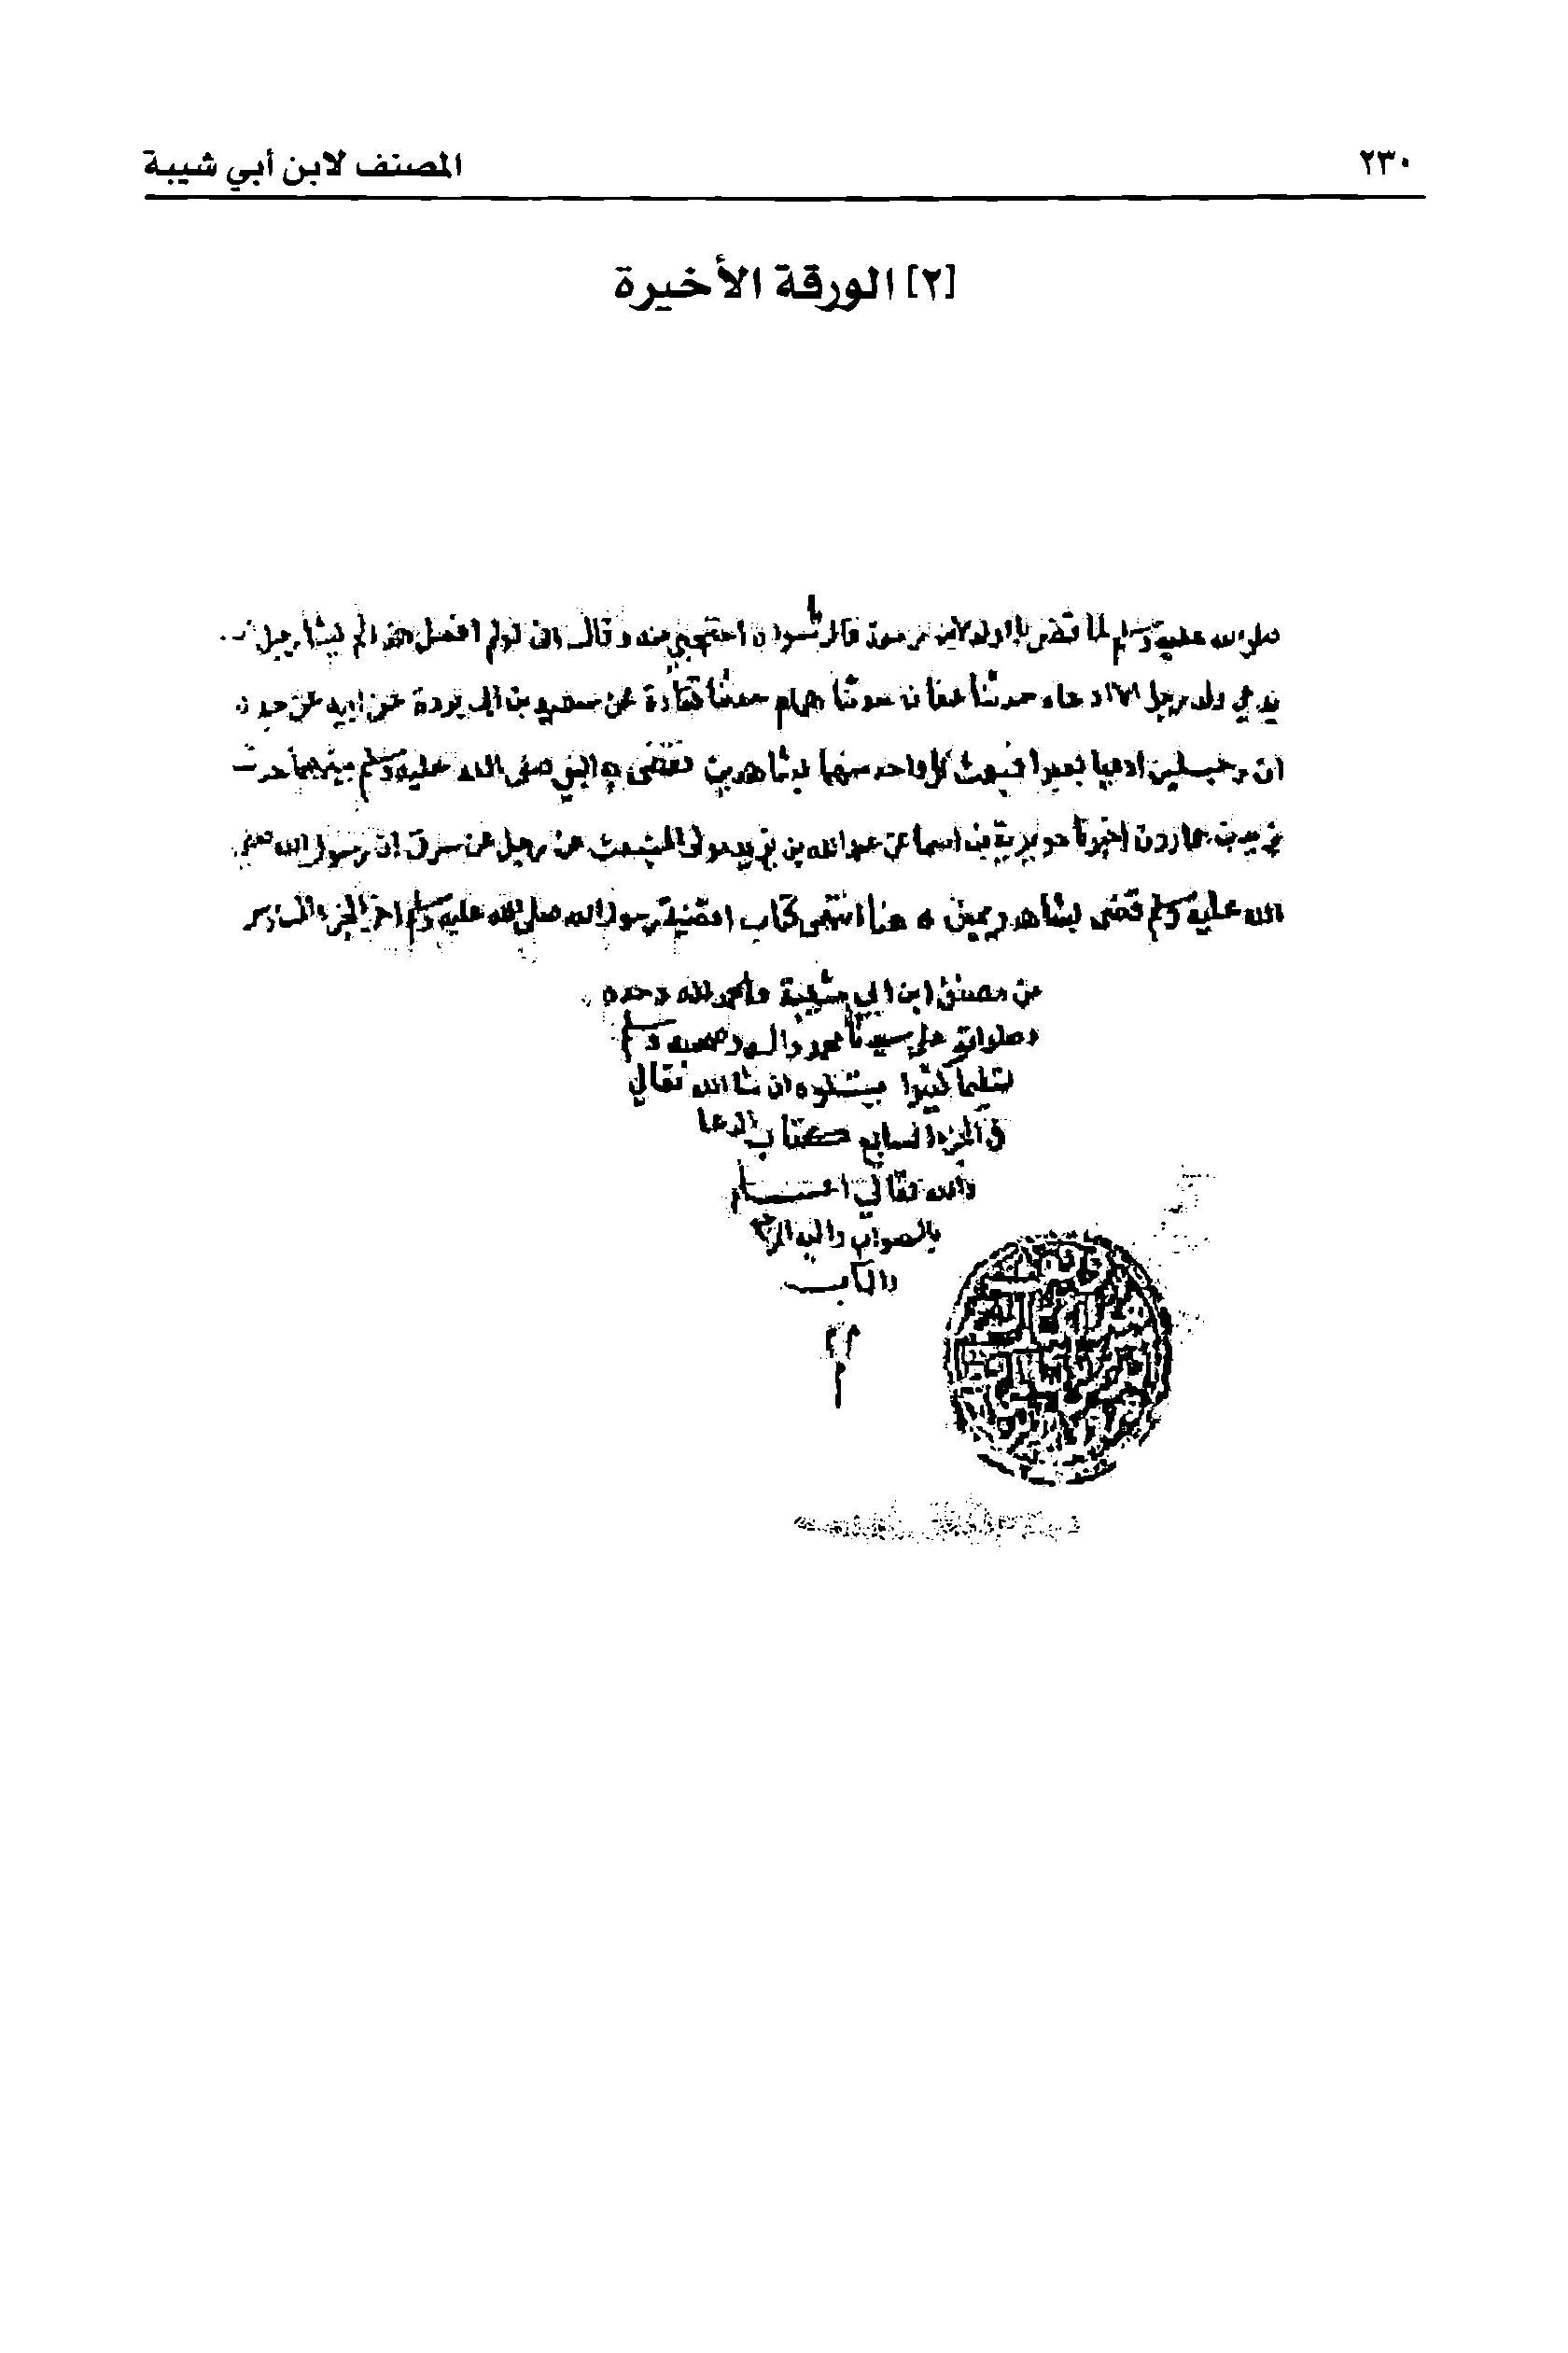 ٢٣٠
المصنف لابن أبي شيبة
[٢] الورقة الأخيرة
صلى الله عليه وسلم لما قضى بالولد لابن زمعة قال لسودة احتجبي منه وقال
يدعي ولد رجل حدثنا عفان حدثنا همام حدثنا قتادة عن سعيد بن ابي بردة عن ابيه عن جده
ان رجلين ادعيا بعيرا فبعث كل واحد منهما بشاهدين فقضى به النبي صلى الله عليه وسلم بينهما حدث
يزيد بن هارون اخبرنا جويرية بن اسما عن عبد الله بن يزيد مولى المنبعث عن رجل عن سرق ان رسول الله صلى
الله عليه وسلم قضى بشاهد ويمين ه هنا انتهى كتاب اقضية رسول الله صلى الله عليه وسلم اخر الجزء السادس
من مصنف ابن ابي شيبة والحمد لله وحده
وصلواته على سيدنا محمد واله وصحبه وسلم
تسليما كثيرا ميتلوه ان شا الله تعالى
في الجزء السابع كتاب الدعا
والله تعالى اعلم
بالصواب واليه المرجع
والمآب